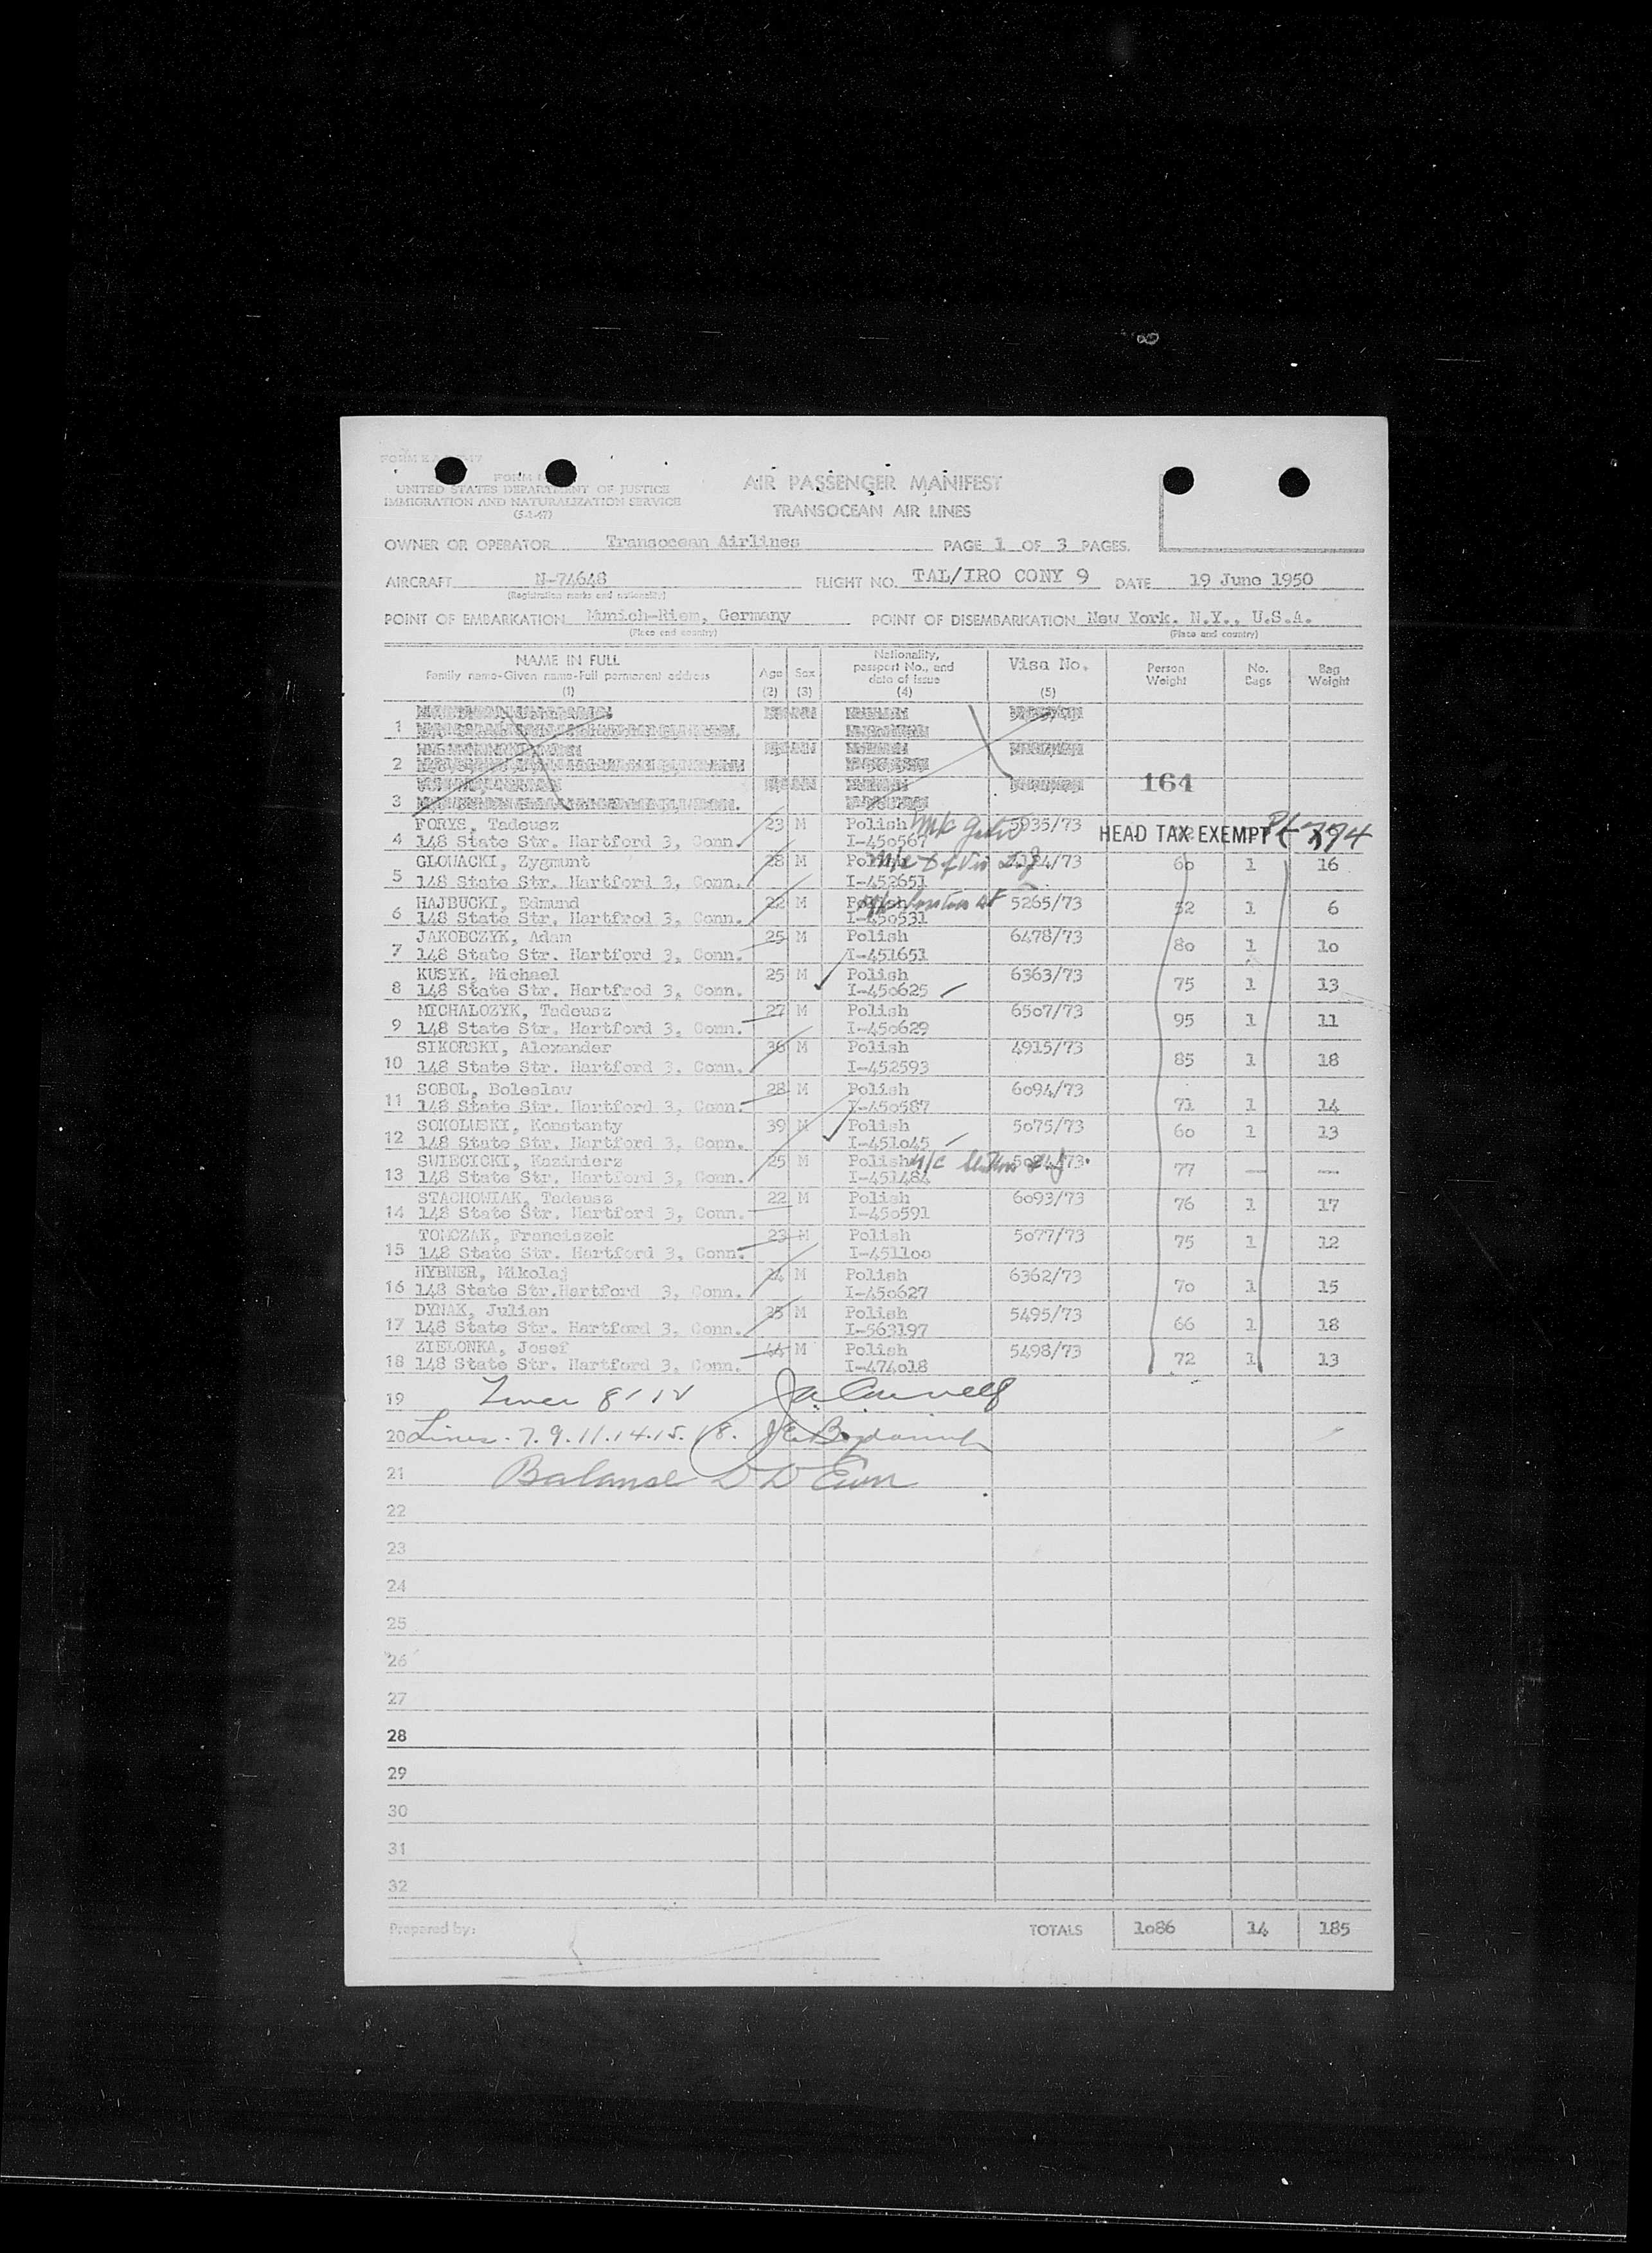 UNITED STATES DEPARTMENT OF JUSTICE
IMMIGRATION AND NATURALIZATION SERVICE
(5-1-47)
AIR PASSENGER MANIFEST
TRANSOCEAN AIR LINES
OWNER OR OPERATOR Transocean Airlines PAGE 1 OF 3 PAGES.
AIRCRAFT N-74648 FLIGHT NO. TAL/IRO CONY 9 DATE 19 June 1950
(Registration marks and nationality)
POINT OF EMBARKATION Munich-Riem, Germany POINT OF DISEMBARKATION New York, N.Y., U.S.A.
(Place and country) (Place and country)
NAME IN FULL Family name-Given name-Full permanent address (1) Age (2) Sex (3) Nationality, passport No., and date of issue (4) Visa No. (5) Person Weight No. Bags Bag Weight
1
2
3 164
FORYS, Tadeusz 23 M Polish 5935/73
4 148 State Str. Hartford 3, Conn. I-450567 HEAD TAX EXEMPT
GLOWACKI, Zygmunt 28 M
5 148 State Str. Hartford 3, Conn. I-452651 60 1 16
HAJBUCKI, Edmund 22 M Polish 5265/73
6 148 State Str. Hartfrod 3, Conn. I-450531 52 1 6
JAKOBCZYK, Adam 25 M Polish 6478/73
7 148 State Str. Hartford 3, Conn. I-451651 80 1 10
KUSYK, Michael 25 M Polish 6363/73
8 148 State Str. Hartfrod 3, Conn. I-450625 75 1 13
MICHALOZYK, Tadeusz 27 M Polish 6507/73
9 148 State Str. Hartford 3, Conn. I-450629 95 1 11
SIKORSKI, Alexander 36 M Polish 4915/73
10 148 State Str. Hartford 3, Conn. I-452593 85 1 18
SOBOL, Boleslaw 28 M Polish 6094/73
11 148 State Str. Hartford 3, Conn. I-450587 71 1 14
SOKOLUSKY, Konstanty 39 M Polish 5075/73
12 148 State Str. Hartford 3, Conn. I-451045 60 1 13
SWIECICKI, Kazimierz 25 M Polish
13 148 State Str. Hartford 3, Conn. I-451484 77 — —
STACHOWIAK, Tadeusz 22 M Polish 6093/73
14 148 State Str. Hartford 3, Conn. I-450591 76 1 17
TOMCZAK, Franciszek 23 M Polish 5077/73
15 148 State Str. Hartford 3, Conn. I-451100 75 1 12
HYBNER, Mikolaj 24 M Polish 6362/73
16 148 State Str.Hartford 3, Conn. I-450627 70 1 15
DYNAK, Julian 35 M Polish 5495/73
17 148 State Str. Hartford 3, Conn. I-563197 66 1 18
ZIELONKA, Josef 44 M Polish 5498/73
18 148 State Str. Hartford 3, Conn. I-474018 72 1 13
19
20 Lines. 7.9.11.14.15. 18.
21 Balance
22
23
24
25
26
27
28
29
30
31
32
Prepared by: TOTALS 1086 14 185